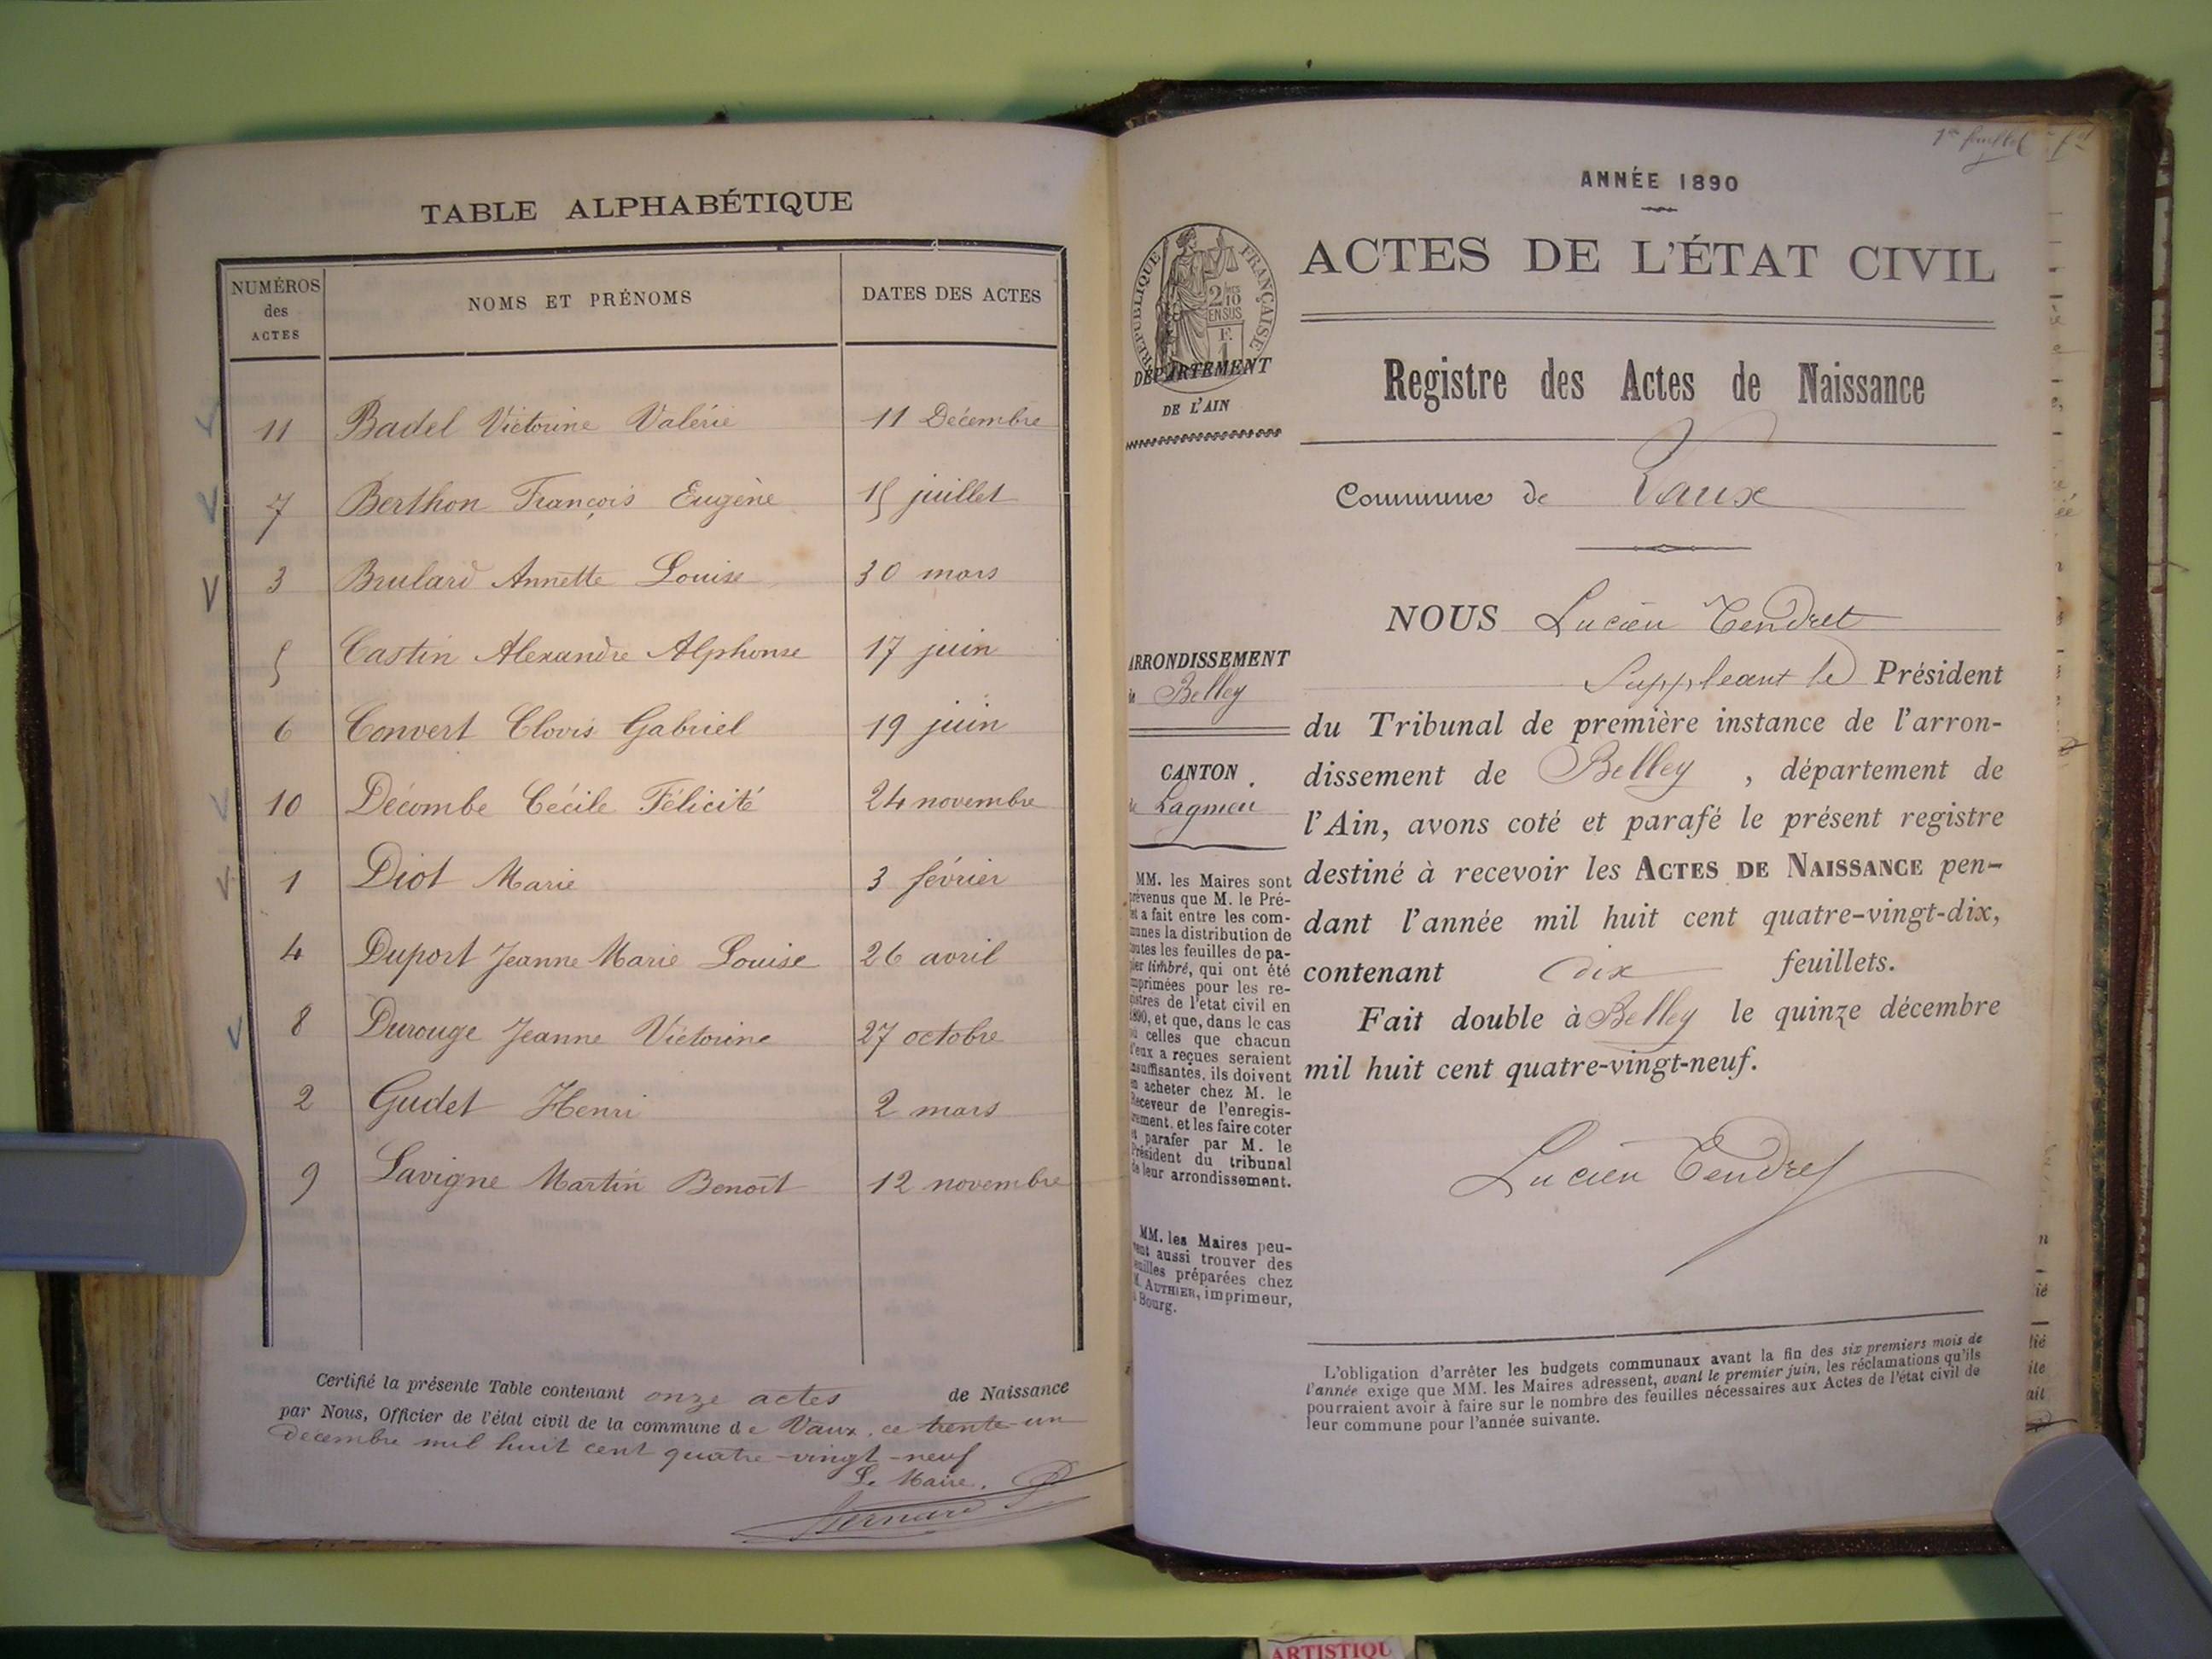 TABLE ALPHABÉTIQUE
NUMÉROS des ACTES
NOMS ET PRÉNOMS
DATES DES ACTES
11 Badel Victorine Valérie 11 Décembre
7 Berthon François Eugène 15 juillet
3 Brulard Annette Louise 30 mars
5 Castin Alexandre Alphonse 17 juin
6 Convert Clovis Gabriel 19 juin
10 Décombe Cécile Félicité 24 novembre
1 Diot Marie 3 février
4 Duport Jeanne Marie Louise 26 avril
8 Durouge Jeanne Victorine 27 octobre
2 Gudet Henri 2 mars
9 Lavigne Martin Benoît 12 novembre
Certifié la présente Table contenant onze actes de Naissance
par Nous, Officier de l'état civil de la commune de Vaux, ce trente-un
décembre mil huit cent quatre-vingt-neuf
Le Maire,
Bernard
1er feuillet
ANNÉE 1890
RÉPUBLIQUE FRANÇAISE
2/10
EN SUS
F.
1
DÉPARTEMENT
DE L'AIN
ACTES DE L'ÉTAT CIVIL
Registre des Actes de Naissance
Commune de Vaux
ARRONDISSEMENT
de Belley
CANTON
de Lagnieu
MM. les Maires sont
prévenus que M. le Pré-
fet a fait entre les com-
munes la distribution de
toutes les feuilles de pa-
pier timbré, qui ont été
imprimées pour les re-
gistres de l'etat civil en
1890, et que, dans le cas
où celles que chacun
d'eux a reçues seraient
insuffisantes, ils doivent
en acheter chez M. le
Receveur de l'enregis-
trement, et les faire coter
et parafer par M. le
Président du tribunal
de leur arrondissement.
MM. les Maires peu-
vent aussi trouver des
feuilles préparées chez
M. AUTHIER, imprimeur,
à Bourg.
NOUS Lucien Tendret
Suppléant le Président
du Tribunal de première instance de l'arron-
dissement de Belley, département de
l'Ain, avons coté et parafé le présent registre
destiné à recevoir les ACTES DE NAISSANCE pen-
dant l'année mil huit cent quatre-vingt-dix,
contenant dix feuillets.
Fait double à Belley le quinze décembre
mil huit cent quatre-vingt-neuf.
Lucien Tendret
L'obligation d'arrêter les budgets communaux avant la fin des six premiers mois de
l'année exige que MM. les Maires adressent, avant le premier juin, les réclamations qu'ils
pourraient avoir à faire sur le nombre des feuilles nécessaires aux Actes de l'état civil de
leur commune pour l'année suivante.
ARTISTIQU